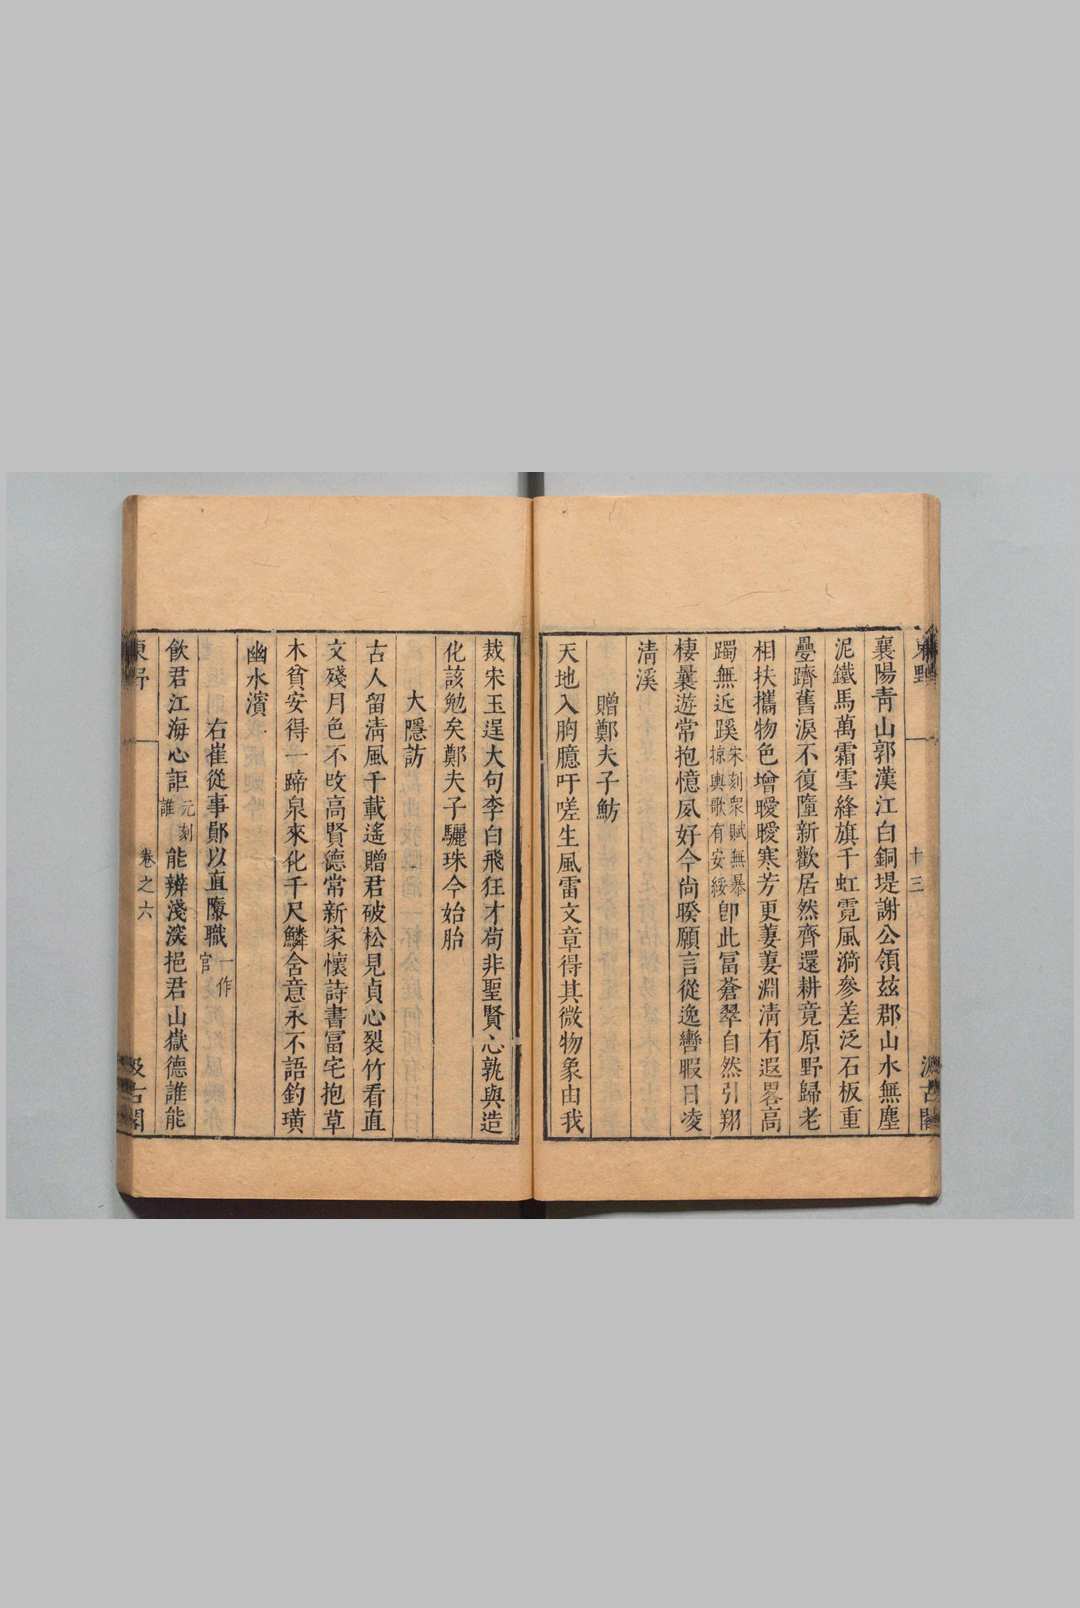 襄陽青山郭漢江白銅堤謝公領玆郡山水無塵
泥鐵馬萬霜雪絳旗千虹霓風漪參差泛石板重
疊躋舊淚不復墮新歡居然齊還耕竟原野歸老
相扶攜物色增曖曖寒芳更萋萋淵清有遐畧高
躅無近蹊宋刻衆賦無暴掠輿歌有安綏卽此富蒼翠自然引翔
棲曩遊常抱憶夙好今尚暌願言從逸轡暇日凌
清溪
贈鄭夫子魴
天地入胸臆吁嗟生風雷文章得其微物象由我
裁宋玉逞大句李白飛狂才苟非聖賢心孰與造
化該勉矣鄭夫子驪珠今始胎
大隱訪
古人留清風千載遙贈君破松見貞心裂竹看直
文殘月色不改高賢德常新家懷詩書富宅抱草
木貧安得一蹄泉來化千尺鱗含意永不語釣璜
幽水濱
右崔從事鄖以直隳職一作官
飲君江海心詎元刻誰能辨淺深挹君山嶽德誰能
東野
卷之六
汲古閣